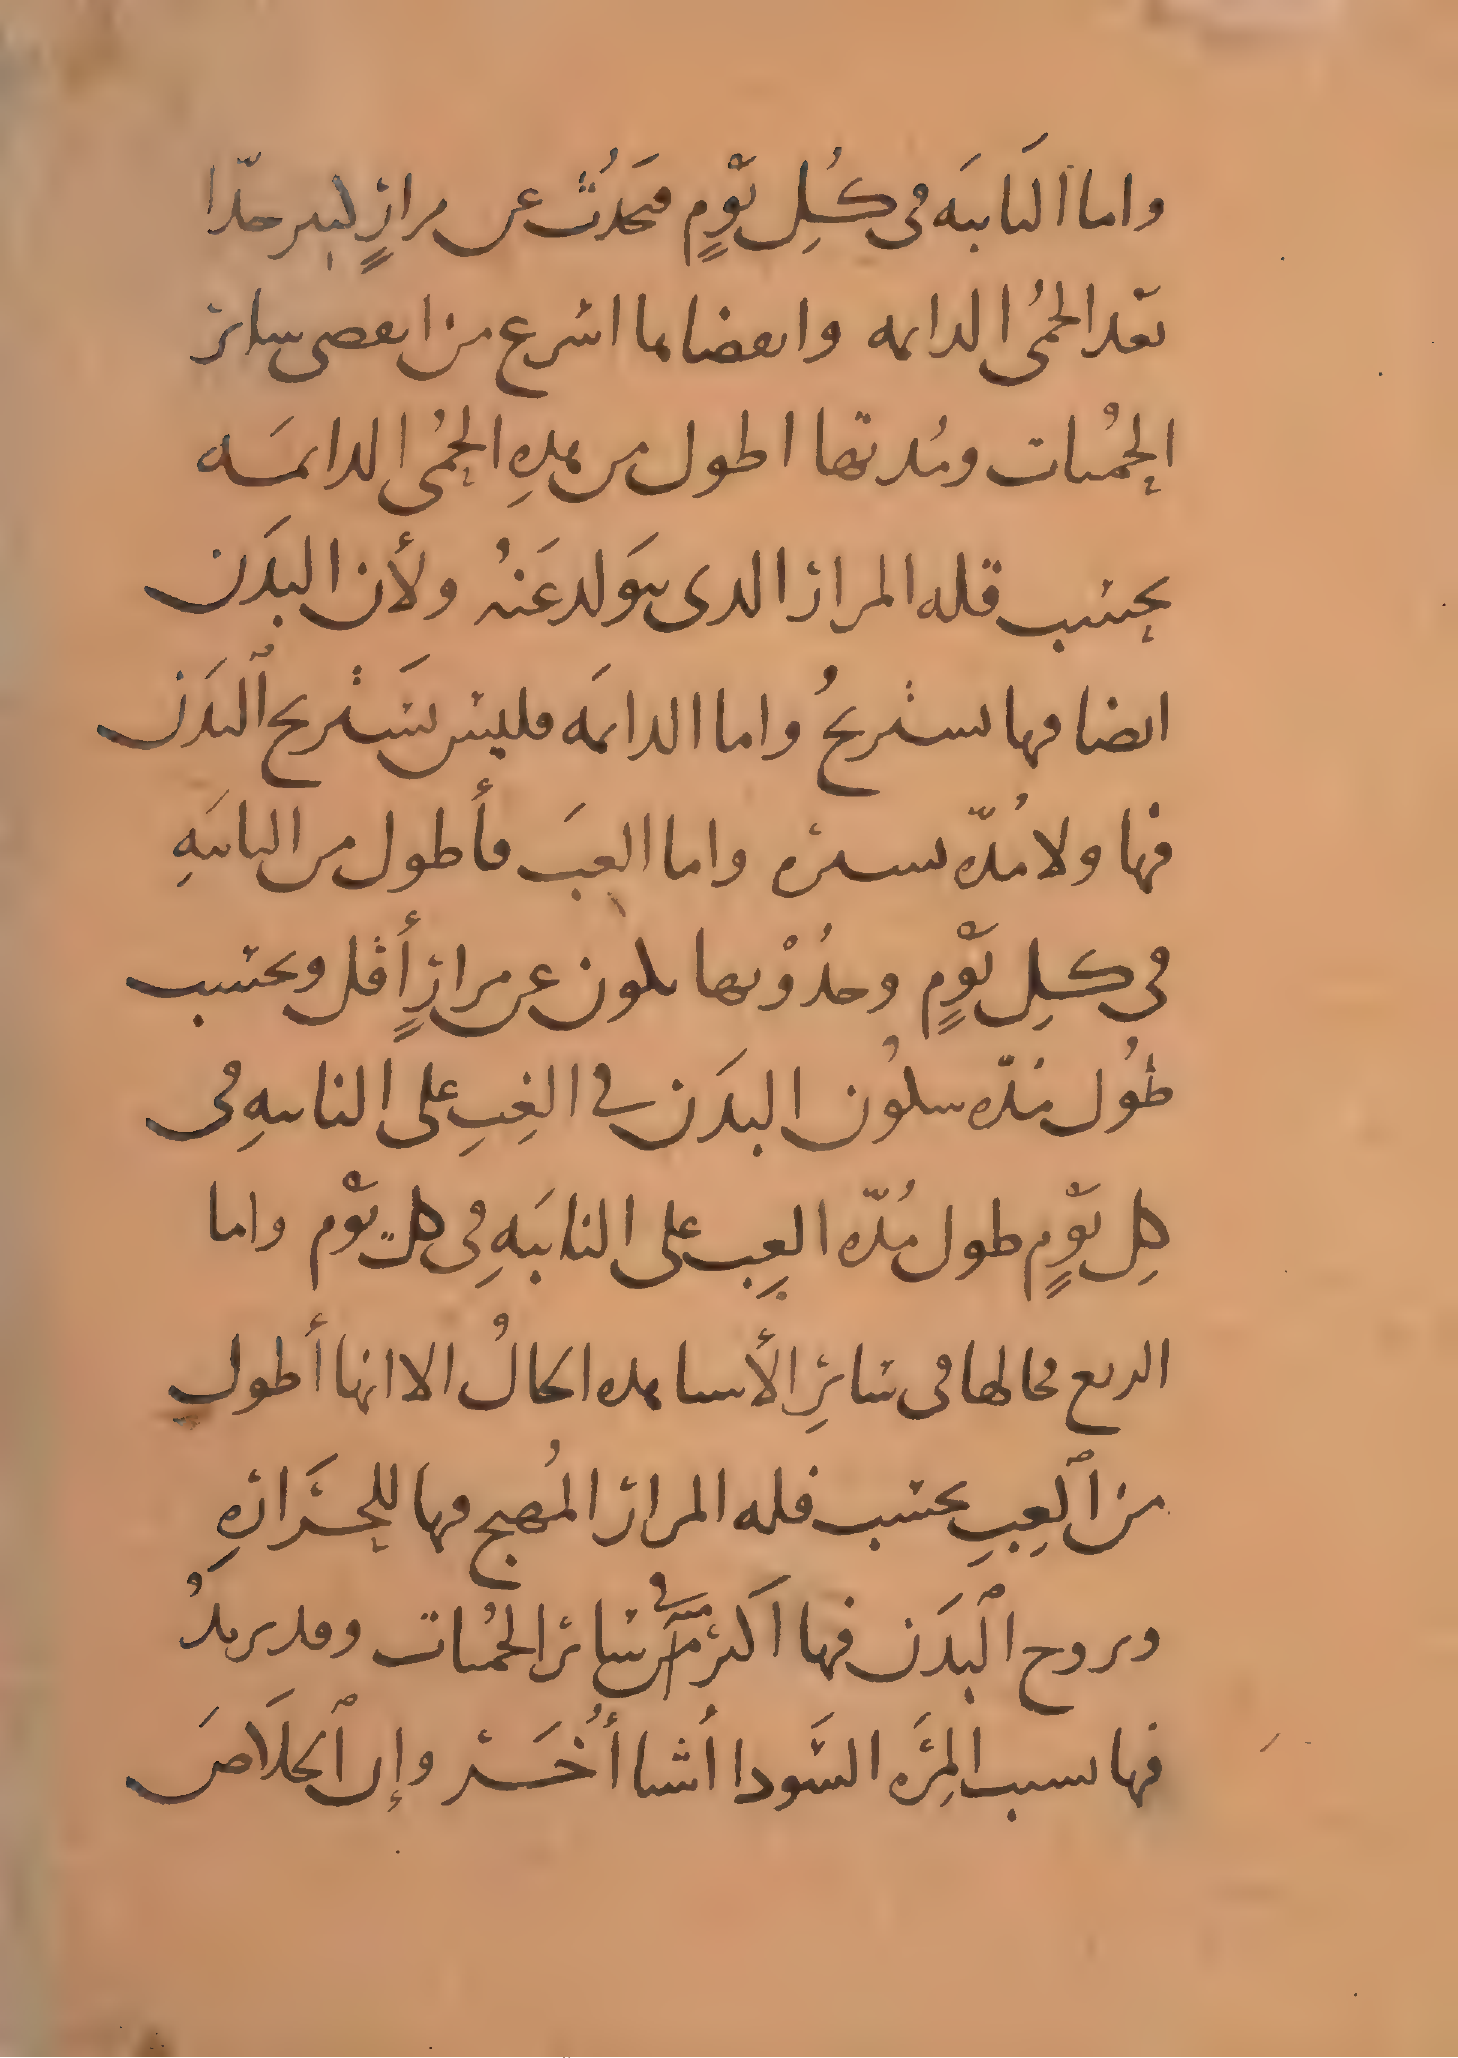 واما النايبَه فى كُلِ يَوْمٍ فتحدُث عن مرارٍ كبير جدّا
بَعْد الحمُى الدايمه وانقضاىما اسْرع من انقصى سائر
الحمُيات ومُدتها اطول من هدهِ الحمُى الدايمَه
بحسب قله المرار الدى يتَولد عَنهُ ولأن البدَن
ايضا فيها يستريحُ واما الدايمَه فليس يسَتريح ٱلبَدَن
فيها ولا مُدّه يسيره واما الغبَ فأطول من النايبَهِ
فى كلِ يَوْمٍ وحدُوْثها يكون عن مرارٍ أقل وبحسب
طوُل مُدّه سكوُن البدَن في الغِبِ على النايبهِ فى
كلِ يَوْمٍ طول مُدّه الغِب على النايبَهِ فى كل يَوْم واما
الربع فحالها فى سَائرِ الأسيا هده الحالُ الا انها أطول
من ٱلغِبِ بحسب قله المرار المُهيج فيها للحَرَارهِ
وىروح ٱلبدَن فيها اكثَر من سَائر الحمُيات وقد يريدُ
فيها بسبب المِرَّه السَّودا أُشيا أُخَر وإن ٱلخلَاصَ